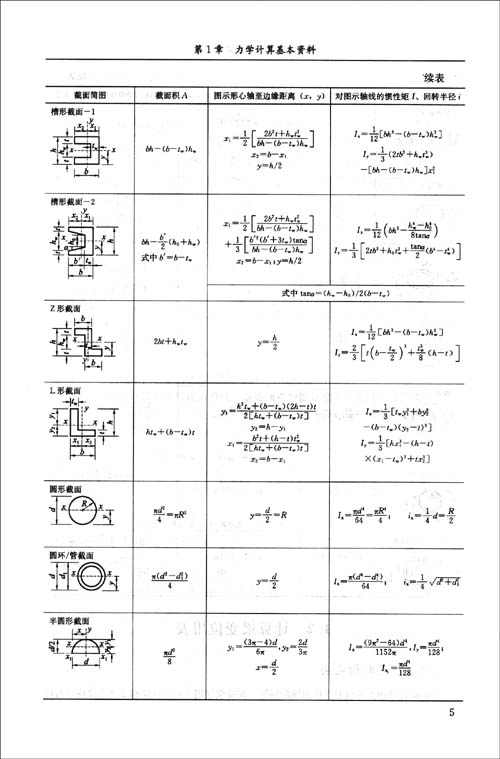 第1章 力学计算基本资料
续表
截面简图 截面积 A 图示形心轴至边缘距离 (x, y) 对图示轴线的惯性矩 I、回转半径 i
槽形截面-1
bh-(b-t_w)h_w
x₁=1/2[(2b²t+h_w t_w²)/(bh-(b-t_w)h_w)]
x₂=b-x₁
y=h/2
I_x=1/12[bh³-(b-t_w)h_w³]
I_y=1/3(2tb³+h_w t_w³)
-[bh-(b-t_w)h_w]x₁²
槽形截面-2
bh-b′/2(h₀+h_w)
式中 b′=b-t_w
x₁=1/2[(2b²t+h_w t_w²)/(bh-(b-t_w)h_w)]
+1/3[(b′²(b′+3t_w)tanα)/(bh-(b-t_w)h_w)]
x₂=b-x₁; y=h/2
式中 tanα=(h_w-h₀)/2(b-t_w)
Z形截面
2bt+h_w t_w
y=h/2
I_x=1/12[bh³-(b-t_w)h_w³]
L形截面
ht_w+(b-t_w)t
y₁=(h²t_w+(b-t_w)(2h-t)t)/(2[ht_w+(b-t_w)t])
y₂=h-y₁
x₁=(b²t+(h-t)t_w²)/(2[ht_w+(b-t_w)t])
x₂=b-x₁
I_x=1/3[t_w y₁³+by₂³
-(b-t_w)(y₂-t)³]
I_y=1/3[hx₁³-(h-t)
×(x₁-t_w)³+tx₂³]
圆形截面
πd²/4=πR²
y=d/2=R
I_x=πd⁴/64=πR⁴/4; i_x=1/4 d=R/2
圆环/管截面
π(d²-d₁²)/4
y=d/2
I_x=π(d⁴-d₁⁴)/64; i_x=1/4√(d²+d₁²)
半圆形截面
πd²/8
y₁=(3π-4)d/6π, y₂=2d/3π
x=d/2
I_x=(9π²-64)d⁴/1152π, I_y=πd⁴/128;
I_x₁=πd⁴/128
5